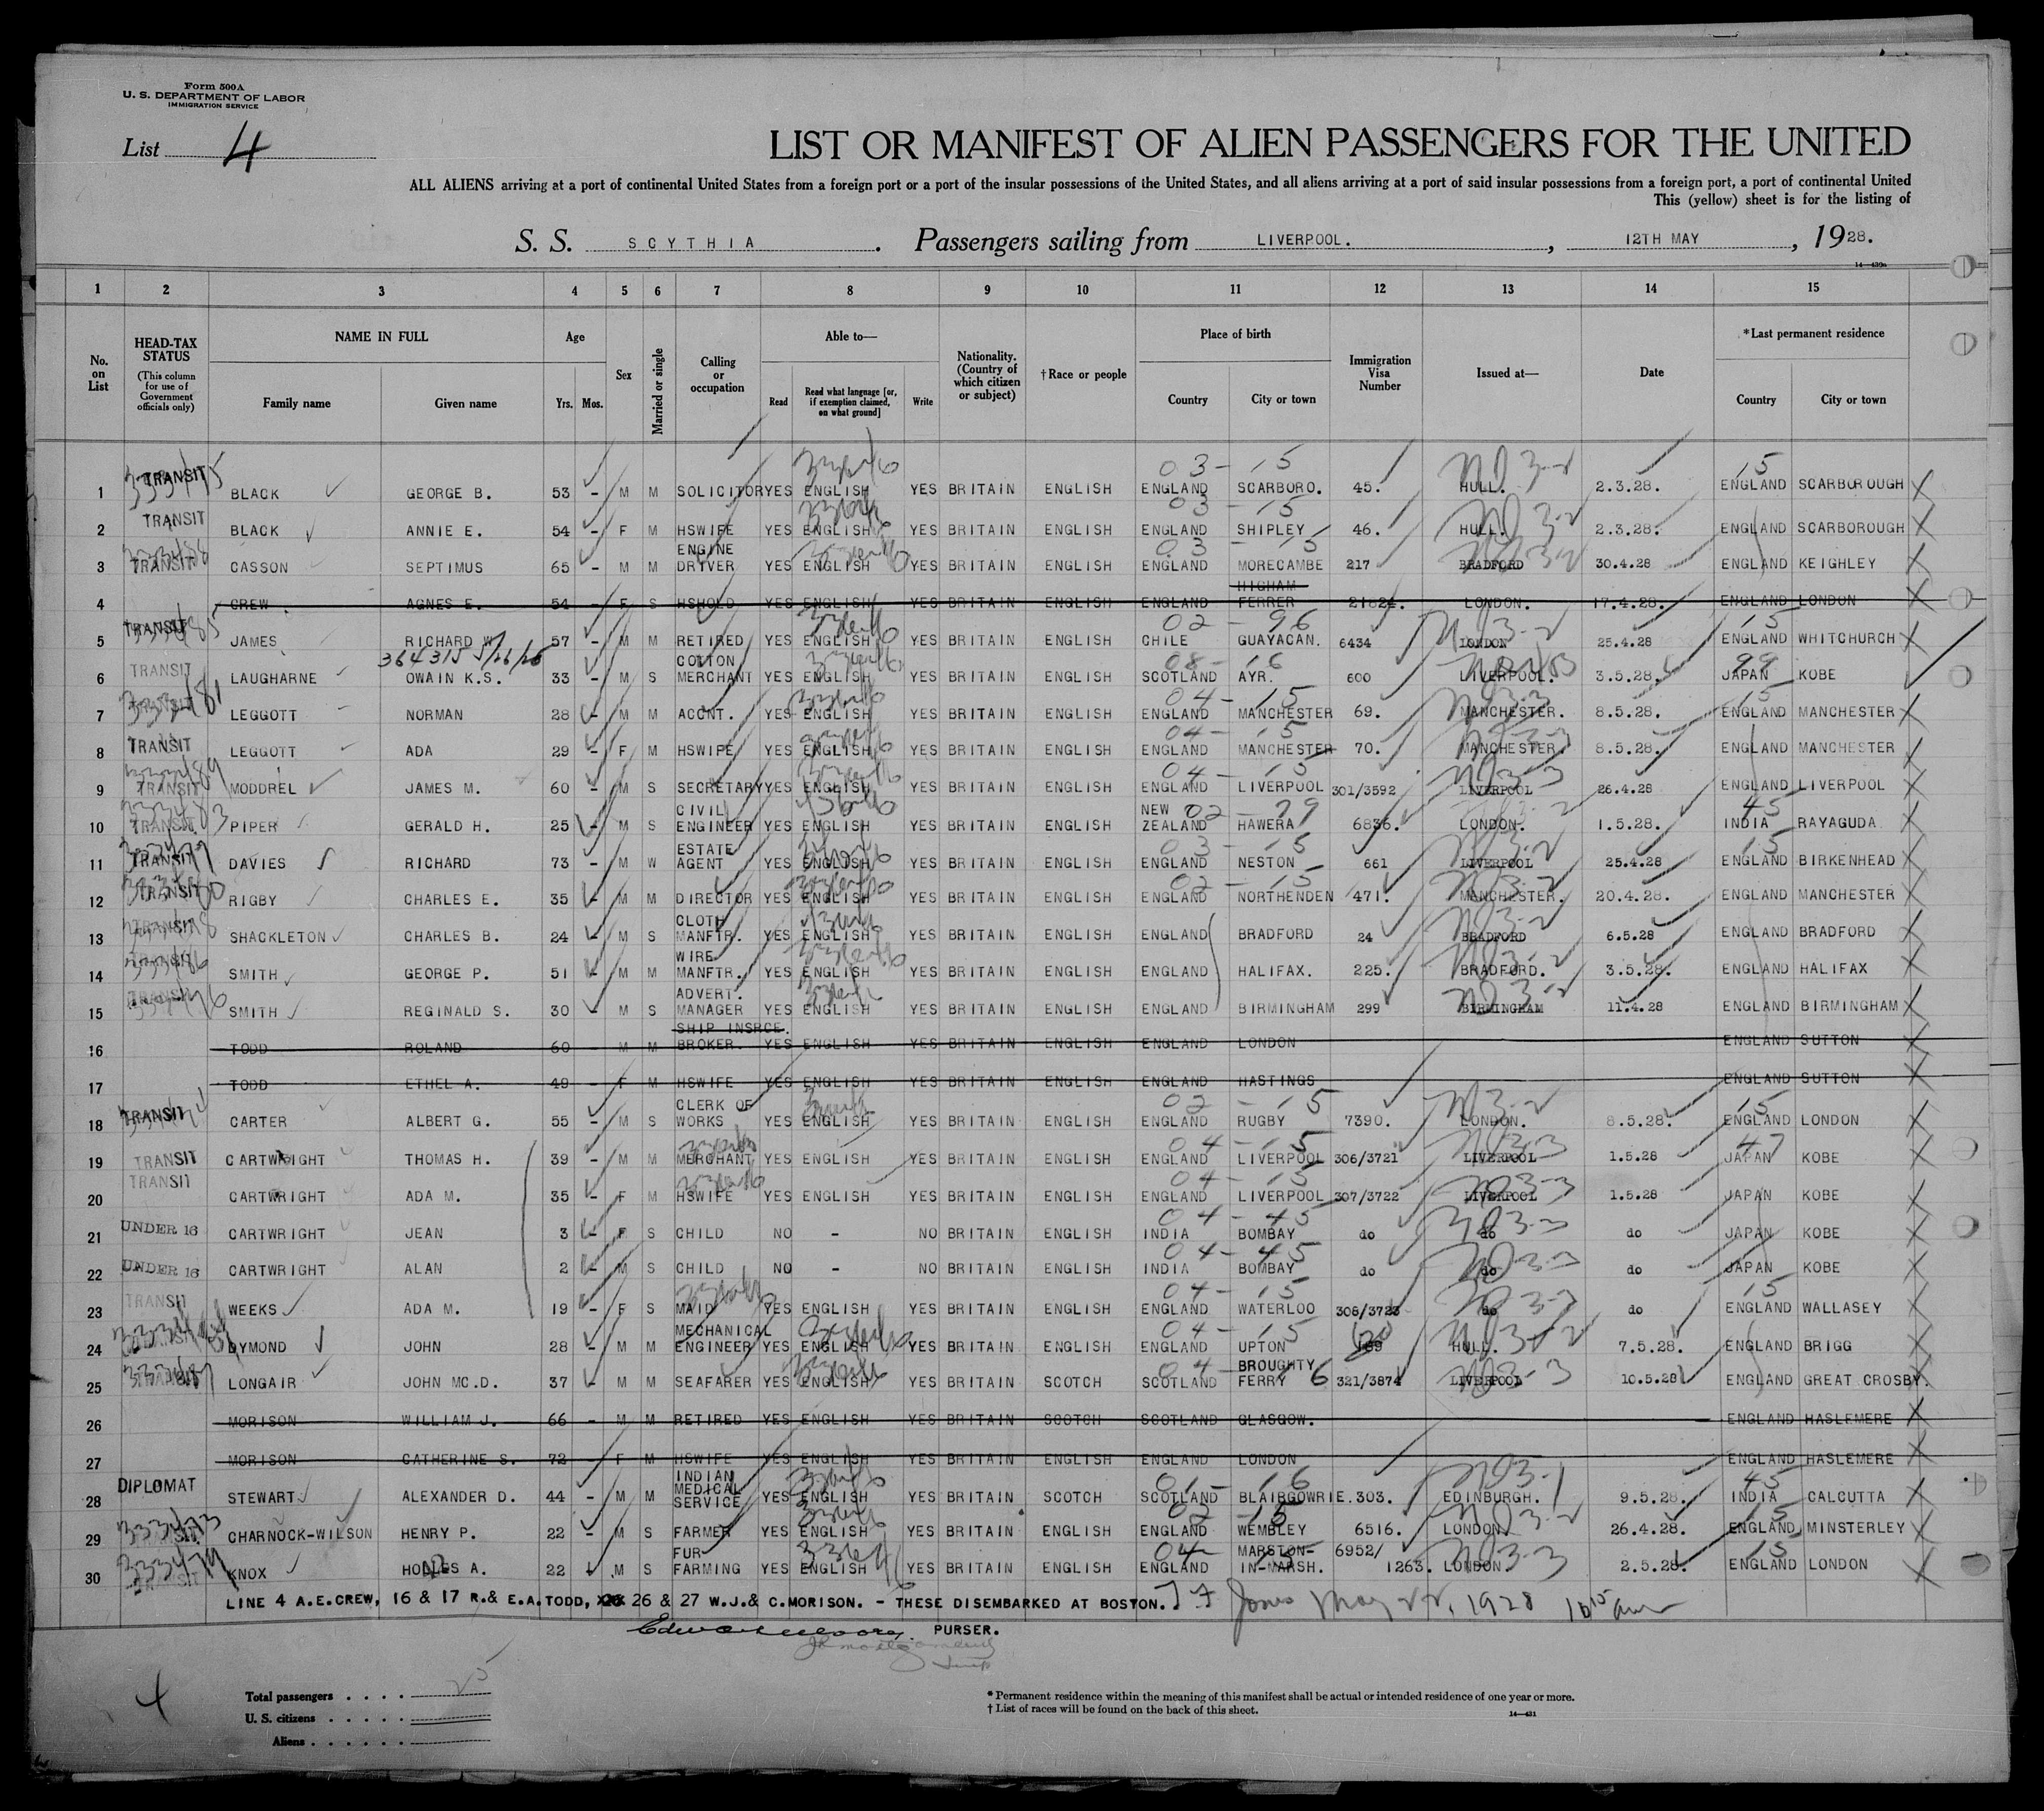 Form 500A
U. S. DEPARTMENT OF LABOR
IMMIGRATION SERVICE
List 4
LIST OR MANIFEST OF ALIEN PASSENGERS FOR THE UNITED
ALL ALIENS arriving at a port of continental United States from a foreign port or a port of the insular possessions of the United States, and all aliens arriving at a port of said insular possessions from a foreign port, a port of continental United
This (yellow) sheet is for the listing of
S. S. SCYTHIA. Passengers sailing from LIVERPOOL., 12TH MAY, 1928.
14—430a
1 2 3 4 5 6 7 8 9 10 11 12 13 14 15
No. on List HEAD-TAX STATUS (This column for use of Government officials only) NAME IN FULL Family name Given name Age Yrs. Mos. Sex Married or single Calling or occupation Able to— Read Read what language [or, if exemption claimed, on what ground] Write Nationality. (Country of which citizen or subject) †Race or people Place of birth Country City or town Immigration Visa Number Issued at— Date *Last permanent residence Country City or town
1 TRANSIT BLACK GEORGE B. 53 - M M SOLICITOR YES ENGLISH YES BRITAIN ENGLISH ENGLAND SCARBORO. 45. HULL. 2.3.28. ENGLAND SCARBOROUGH
2 TRANSIT BLACK ANNIE E. 54 - F M HSWIFE YES ENGLISH YES BRITAIN ENGLISH ENGLAND SHIPLEY 46. HULL. 2.3.28. ENGLAND SCARBOROUGH
3 TRANSIT CASSON SEPTIMUS 65 - M M ENGINE DRIVER YES ENGLISH YES BRITAIN ENGLISH ENGLAND MORECAMBE 217 BRADFORD 30.4.28 ENGLAND KEIGHLEY
4 CREW. AGNES E. 54 - F S HSHOLD YES ENGLISH YES BRITAIN ENGLISH ENGLAND HIGHAM FERRER 21824. LONDON. 17.4.28. ENGLAND LONDON
5 TRANSIT JAMES RICHARD W. 57 - M M RETIRED YES ENGLISH YES BRITAIN ENGLISH CHILE GUAYACAN. 6434 LONDON 25.4.28 ENGLAND WHITCHURCH
6 TRANSIT LAUGHARNE OWAIN K.S. 33 - M S COTTON MERCHANT YES ENGLISH YES BRITAIN ENGLISH SCOTLAND AYR. 600 LIVERPOOL. 3.5.28. JAPAN KOBE
7 TRANSIT LEGGOTT NORMAN 28 - M M ACCNT. YES ENGLISH YES BRITAIN ENGLISH ENGLAND MANCHESTER 69. MANCHESTER. 8.5.28. ENGLAND MANCHESTER
8 TRANSIT LEGGOTT ADA 29 - F M HSWIFE YES ENGLISH YES BRITAIN ENGLISH ENGLAND MANCHESTER 70. MANCHESTER. 8.5.28. ENGLAND MANCHESTER
9 TRANSIT MODDREL JAMES M. 60 - M S SECRETARY YES ENGLISH YES BRITAIN ENGLISH ENGLAND LIVERPOOL 301/3592 LIVERPOOL 26.4.28 ENGLAND LIVERPOOL
10 TRANSIT. PIPER GERALD H. 25 - M S CIVIL ENGINEER YES ENGLISH YES BRITAIN ENGLISH NEW ZEALAND HAWERA 6836. LONDON. 1.5.28. INDIA RAYAGUDA
11 TRANSIT DAVIES RICHARD 73 - M W ESTATE AGENT YES ENGLISH YES BRITAIN ENGLISH ENGLAND NESTON 661 LIVERPOOL 25.4.28 ENGLAND BIRKENHEAD
12 TRANSIT RIGBY CHARLES E. 35 - M M DIRECTOR YES ENGLISH YES BRITAIN ENGLISH ENGLAND NORTHENDEN 471. MANCHESTER. 20.4.28. ENGLAND MANCHESTER
13 TRANSIT SHACKLETON CHARLES B. 24 - M S CLOTH MANFTR. YES ENGLISH YES BRITAIN ENGLISH ENGLAND BRADFORD 24 BRADFORD 6.5.28 ENGLAND BRADFORD
14 TRANSIT SMITH GEORGE P. 51 - M M WIRE MANFTR. YES ENGLISH YES BRITAIN ENGLISH ENGLAND HALIFAX. 225. BRADFORD. 3.5.28. ENGLAND HALIFAX
15 TRANSIT SMITH REGINALD S. 30 - M S ADVERT. MANAGER YES ENGLISH YES BRITAIN ENGLISH ENGLAND BIRMINGHAM 299 BIRMINGHAM 11.4.28 ENGLAND BIRMINGHAM
16 TODD ROLAND 60 - M M SHIP INSRCE. BROKER. YES ENGLISH YES BRITAIN ENGLISH ENGLAND LONDON ENGLAND SUTTON
17 TODD ETHEL A. 49 - F M HSWIFE YES ENGLISH YES BRITAIN ENGLISH ENGLAND HASTINGS ENGLAND SUTTON
18 TRANSIT CARTER ALBERT G. 55 - M S CLERK OF WORKS YES ENGLISH YES BRITAIN ENGLISH ENGLAND RUGBY 7390. LONDON. 8.5.28. ENGLAND LONDON
19 TRANSIT CARTWRIGHT THOMAS H. 39 - M M MERCHANT YES ENGLISH YES BRITAIN ENGLISH ENGLAND LIVERPOOL 306/3721 LIVERPOOL 1.5.28 JAPAN KOBE
20 TRANSIT CARTWRIGHT ADA M. 35 - F M HSWIFE YES ENGLISH YES BRITAIN ENGLISH ENGLAND LIVERPOOL 307/3722 LIVERPOOL 1.5.28 JAPAN KOBE
21 UNDER 16 CARTWRIGHT JEAN 3 - F S CHILD NO - NO BRITAIN ENGLISH INDIA BOMBAY do do do JAPAN KOBE
22 UNDER 16 CARTWRIGHT ALAN 2 - M S CHILD NO - NO BRITAIN ENGLISH INDIA BOMBAY do do do JAPAN KOBE
23 TRANSIT WEEKS ADA M. 19 - F S MAID YES ENGLISH YES BRITAIN ENGLISH ENGLAND WATERLOO 308/3723 do do ENGLAND WALLASEY
24 DYMOND JOHN 28 - M M MECHANICAL ENGINEER YES ENGLISH YES BRITAIN ENGLISH ENGLAND UPTON HULL. 7.5.28. ENGLAND BRIGG
25 LONGAIR JOHN MC.D. 37 - M M SEAFARER YES ENGLISH YES BRITAIN SCOTCH SCOTLAND BROUGHTY FERRY 321/3874 LIVERPOOL 10.5.28 ENGLAND GREAT CROSBY.
26 MORISON WILLIAM J. 66 - M M RETIRED YES ENGLISH YES BRITAIN SCOTCH SCOTLAND GLASGOW. ENGLAND HASLEMERE
27 MORISON CATHERINE S. 72 - F M HSWIFE YES ENGLISH YES BRITAIN ENGLISH ENGLAND LONDON ENGLAND HASLEMERE
28 DIPLOMAT STEWART ALEXANDER D. 44 - M M INDIAN MEDICAL SERVICE YES ENGLISH YES BRITAIN SCOTCH SCOTLAND BLAIRGOWRIE. 303. EDINBURGH. 9.5.28. INDIA CALCUTTA
29 CHARNOCK-WILSON HENRY P. 22 - M S FARMER YES ENGLISH YES BRITAIN ENGLISH ENGLAND WEMBLEY 6516. LONDON. 26.4.28. ENGLAND MINSTERLEY
30 TRANSIT KNOX A. 22 - M S FUR FARMING YES ENGLISH YES BRITAIN ENGLISH ENGLAND MARSTON-IN-MARSH. 6952/1263. LONDON. 2.5.28. ENGLAND LONDON
LINE 4 A.E.CREW, 16 & 17 R.& E.A.TODD, 26 & 27 W.J.& C.MORISON. - THESE DISEMBARKED AT BOSTON.
PURSER.
4
Total passengers 25
U. S. citizens
Aliens
* Permanent residence within the meaning of this manifest shall be actual or intended residence of one year or more.
† List of races will be found on the back of this sheet.
14—431